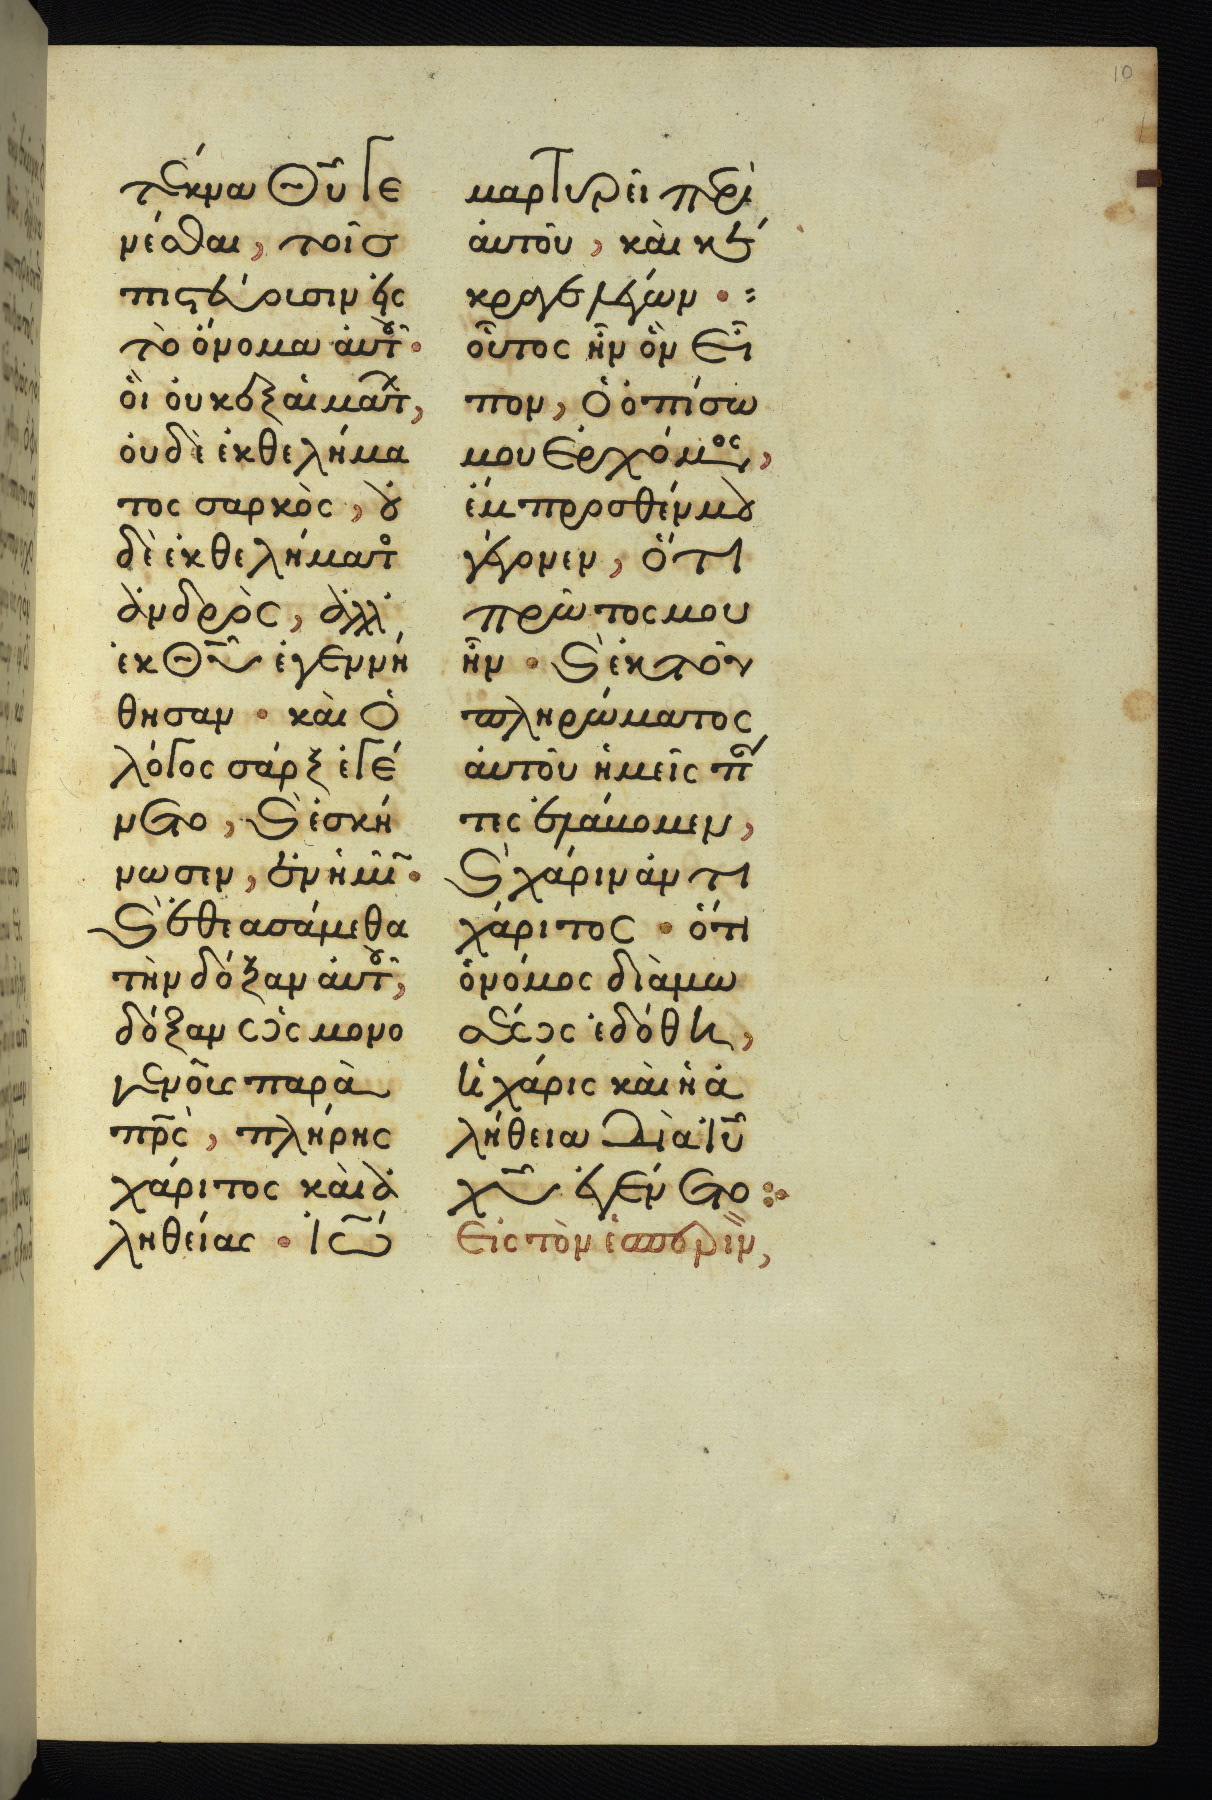 τέκνα Θῦ γε
νέσθαι, τοῖσ
πιστεύουσιν εἰς
τὸ ὄνομα ἀυτοῦ.
ὁὶ ὀυκ ἐξ ἁιμάτ,
ὀυδὲ ἐκ θελήμα
τος σαρκὸς, ὀυ
δὲ ἐκ θελήματο
ἀνδρὸς, ἀλλ'
ἐκ Θῦ ἐγεννή
θησαν. κὰι ὁ
λόγος σάρξ ἐγέ
νετο, κὰι ἐσκή
νωσεν, ἐν ἡμῖ.
κὰι ἐθεασάμεθα
τὴν δόξαν ἀυτοῦ,
δόξαν ὡς μονο
γενοῦς παρὰ
πρς, πλήρης
χάριτος κὰι ἀ
ληθείας. ἰῶ
μαρτυρεῖ περὶ
ἀυτοῦ, κὰι κέ
κραγε λέγων.
οὗτος ἦν ὃν εἶ
πον, ὁ ὀπίσω
μου ἐρχόμνος,
ἔμπροσθέν μου
γέγονεν, ὅτι
πρῶτος μου
ἦν. κὰι ἐκ τοῦ
πληρώματος
ἀυτοῦ ἡμεῖς πά
τες ἐλάβομεν,
κὰι χάριν ἀντι
χάριτος. ὅτι
ὁ νόμος διὰ μω
σέως ἐδόθη,
ἡ χάρις κὰι ἡ ἀ
λήθεια διὰ ἰῦ
χῦ ἐγένετο
Εἰς τὸν ἑσπερινν,
10